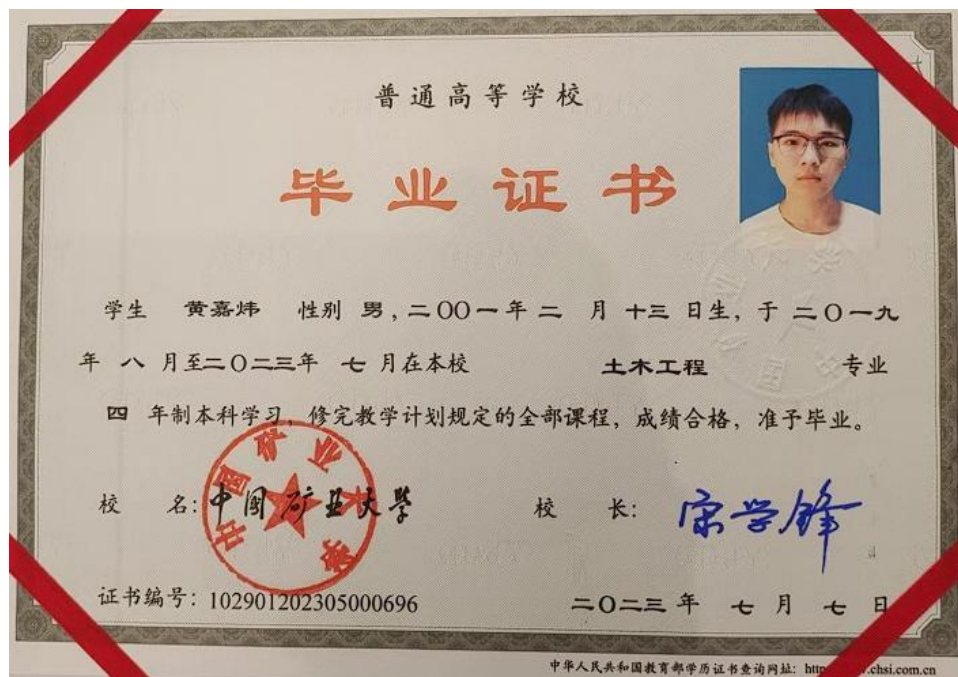 普通高等学校
毕业证书
学生 黄嘉炜 性别 男，二〇〇一年 二 月 十三 日生，于 二〇一九
年 八 月至二〇二三年 七 月在本校 土木工程 专业
四 年制本科学习，修完教学计划规定的全部课程，成绩合格，准予毕业。
校 名：中国矿业大学 校 长：宋学锋
证书编号：102901202305000696 二〇二三 年 七 月 七 日
中华人民共和国教育部学历证书查询网址：http .chsi.com.cn